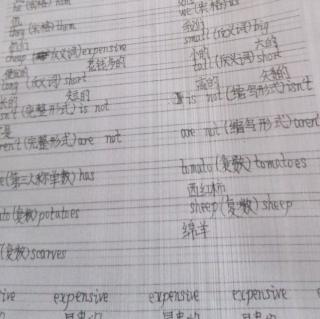 they(宾格)them we(宾格)us
他们 我们
cheap (反义词)expensive small(反义词)big
便宜的 花钱多的 小的 大的
long (反义词) short tall(反义词)short
长的 短的 高的 矮的
isn't (完整形式) is not is not(缩写形式)isn't
aren't(完整形式)are not are not(缩写形式)aren't
(第三人称单数) has tomato(复数)tomatoes
西红柿
(复数)potatoes sheep(复数)sheep
绵羊
(复数)scarves
expensive expensive expensive